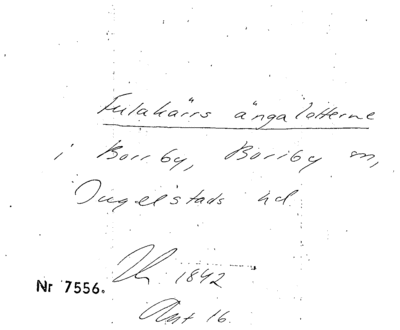 Fulakärrs ängalotterne
i Borrby, Borrby sn,
Ingelstads hd
1842
Nr 7556.
Akt 16.